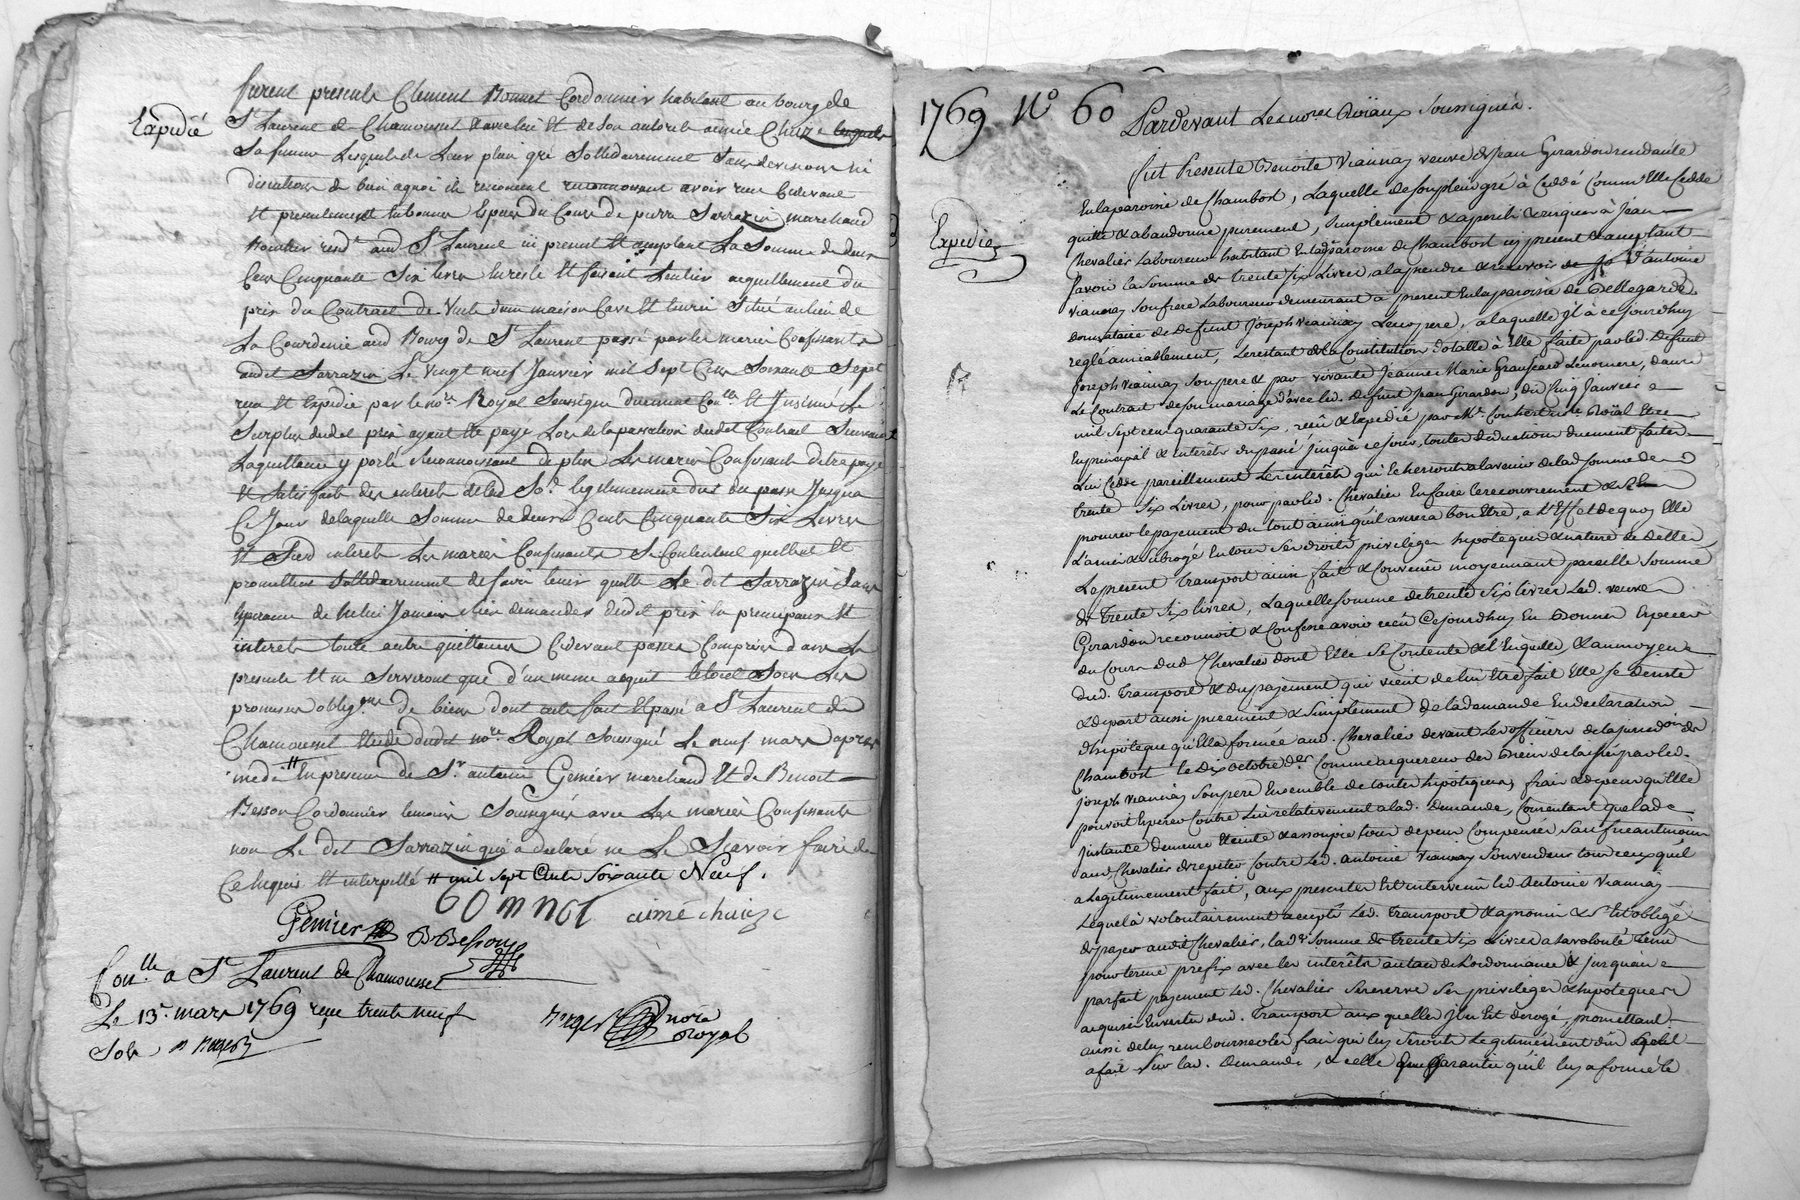 furent présents Clement Bonnet Cordonnier habitant au bourg de
Expedié
St Laurent de Chamousset & avec lui et de son autorité aimée Chaize
sa femme Lesquels de Leur plain gré Sollidairement Sans division ni
discution de bien aquoi ils renoncent reconnoissent avoir reçu Cidevant
Et presentement En bonnes Especes du Cours de pierre Sarrazin marchand
aud St Laurent ici present Et acceptant La Somme de deux
Cent Cinquante Six livres En reste Et faisant Lentier acquittement du
prix du Contract de Vente dune maison Cave Et Situé au lieu de
La aud Bourg de St Laurent passé par les mariés Confessants
audit Sarrazin Le Vingt neuf Janvier mil Sept Cens Soixante Sept
reçu Et Expedié par le nore Royal Soussigné duement Conllé Et Insinué Le
Surplus dudit prix ayant Eté payé Lors de la passation dudit Contract Suivant
La quittance y porté Reconnoissant de plus Les mariés Confessants detre payé
Et Satisfaits des interets de lad So.e legitimement dus du passé Jusqua
Ce Jour de laquelle Somme de deux Cents Cinquante Six Livres
Et Sesd interets Les mariés Confessants Se Contentent quittent Et
promettent Sollidairement de faire tenir quitte Le dit Sarrazin Sans
Esperance de lui Jamais Rien demander dudit prix En principaux Et
interets toute autre quittances Cidevant passées Comprises dans La
presente Et ne Serviront que d'un meme acquit
promesses obligons de biens dont acte fait Et passé a St Laurent de
Chamousset Etude dudit nore Royal Soussigné Le neuf mars apres
midi # En presence de Sr antoine Gemier marchand Et de Benoit
Besson Cordonnier temoins Soussignés avec Les mariés Confessants
non Le dit Sarrazin qui a declaré ne Le Scavoir faire de
Ce Enquis Et interpellé # mil Sept Cents Soixante Neuf.
bonnet aimé chaize
Gemier B Besson
Conlle a St Laurent de Chamousset
Le 13e mars 1769 reçu trente neuf
Sols
nore
Royal
1769 No 60
Pardevant Les nores Roïaux Soussignés.
Expedié
fut Presente Benoite Viannay veuve de Jean Girardon residante
En la paroisse de Chambost, Laquelle de son plein gré à Ceddé Comme Elle Cedde
quitte & abandonne purement, Simplement & à Jean
Chevalier Laboureur habitant En lade paroisse de Chambost icy present & acceptant
Savoir la Somme de trente Six Livres, a la prendre & recevoir de d'antoine
viannay Son frere Laboureur demeurant à present En la paroisse de Bellegarde
donnataire de defunt Joseph Viannay Leur pere, a laquelle Il à ce jourdhuy
reglé amiablement, Le restant de la Constitution dotalle à Elle faite par led. Defunt
Joseph viannay Son pere & par vivante Jeanne Marie Le mere, dans
Le Contract de Son mariage avec led. Defunt Jean Girardon, du Cinq Janvier
mil Sept cens quarante Six, reçû & Expedié par Me. nore Roïal
En principal & interêts du passé jusqu'à ce jour, toutes deductions duement faites
Lui Cedde pareillement Les interêts qui Echerront a lavenir de lad Somme de
trente Six Livres, pour par led. Chevalier En faire Le recouvrement &
payement du tout ainsi qu'il avisera bon Etre, a L'Effet de quoy Elle
L'a mis & Subrogé En tous Ses droits privileges hipoteques & nature de dette,
Le present transport ainsi fait & Convenu moyennant pareille Somme
de Trente Six livres, Laquelle Somme de trente Six livres Lad. veuve
Girardon reconnoit & Confesse avoir reçû Cejourdhuy En Bonnes Especes
du Cours dud Chevalier dont Elle Se Contente & l'En quitte & au moyen
Dud. Transport & du payement qui vient de lui Etre fait Elle Se Desiste
& depart aussi purement & Simplement de la demande En declaration
d'hipoteque qu'Ella formée aud. Chevalier devant Les officiers de la jurisdon de
Chambost le dix octobre der. Comme acquereur des Biens de la par led.
Joseph Viannay Son pere Ensemble de toutes hipoteques, frais & depens qu'Elle
pouvoit Esperer Contre Lui relativement a lad. Demande, Consentant que lad
Instance Demeure Eteinte & assoupie tous depens Compensés, Sauf neantmoins
aud Chevalier de repeter Contre led. antoine viannay Son vendeur tous ceux qu'il
a Legitimement fait, aux presentes Est intervenu led Antoine Viannay
Lequel à volontairement accepté Led. Transport & a promis & S'Est obligé
de payer audit Chevalier, lade Somme de Trente Six Livres a Sa volonté
pour terme prefix avec les interêts au taux de Lordonnance & jusqu'au
parfait payement Led. Chevalier Se reserve Ses privileges & hipoteques
acquises En vertu dud. Transport aux quelles Il n'Est derogé, promettant
aussi de luy rembourser les frais qui luy Seront Legitimement dûs
a fait Sur lad. Demande, & celle En Garantie qu'il luy a formée le